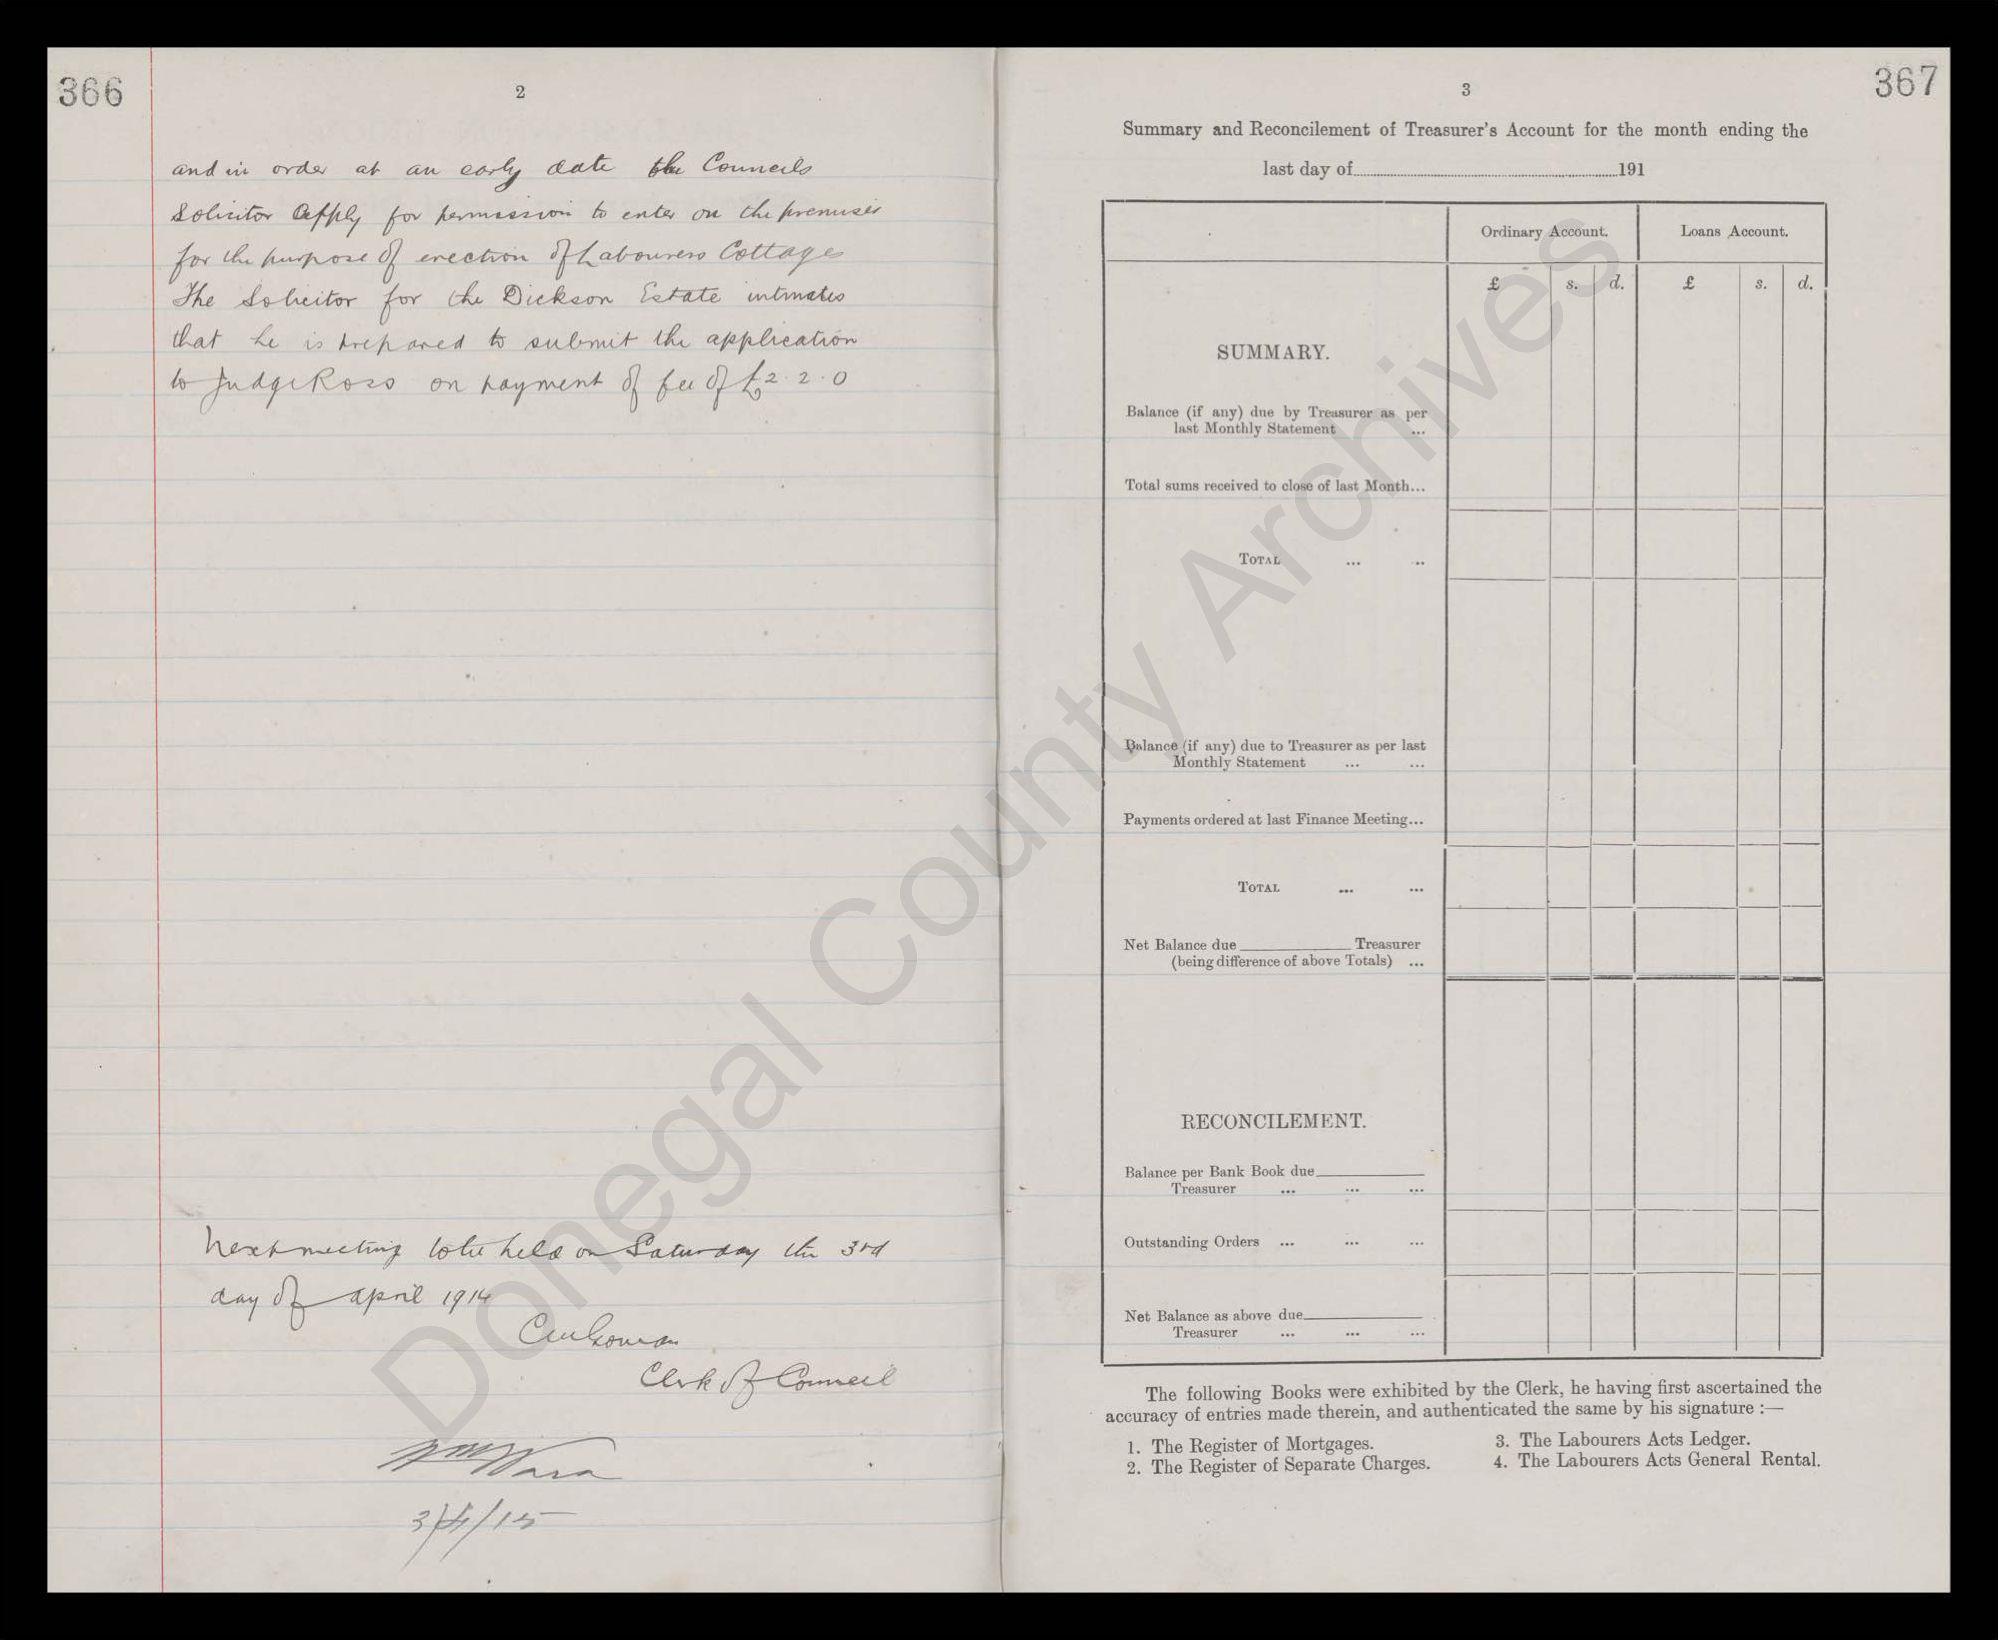 366
2
and in order at an early date the Councils
Solicitor Apply for permission to enter on the premises
for the purpose of erection of Labourers Cottages
The Solicitor for the Dickson Estate intimates
that he is prepared to submit the application
to Judge Ross on payment of fee of £2.2.0
Next meeting to be held on Saturday the 3rd
day of April 1914
Clerk of Council
3/4/15
367
3
Summary and Reconcilement of Treasurer's Account for the month ending the
last day of 191
Ordinary Account. Loans Account.
£ s. d. £ s. d.
SUMMARY.
Balance (if any) due by Treasurer as per
last Monthly Statement ...
Total sums received to close of last Month...
TOTAL ... ...
Balance (if any) due to Treasurer as per last
Monthly Statement ... ...
Payments ordered at last Finance Meeting...
TOTAL ... ...
Net Balance due Treasurer
(being difference of above Totals) ...
RECONCILEMENT.
Balance per Bank Book due
Treasurer ... ... ...
Outstanding Orders ... ... ...
Net Balance as above due
Treasurer ... ... ...
The following Books were exhibited by the Clerk, he having first ascertained the
accuracy of entries made therein, and authenticated the same by his signature :—
1. The Register of Mortgages. 3. The Labourers Acts Ledger.
2. The Register of Separate Charges. 4. The Labourers Acts General Rental.
Donegal County Archives